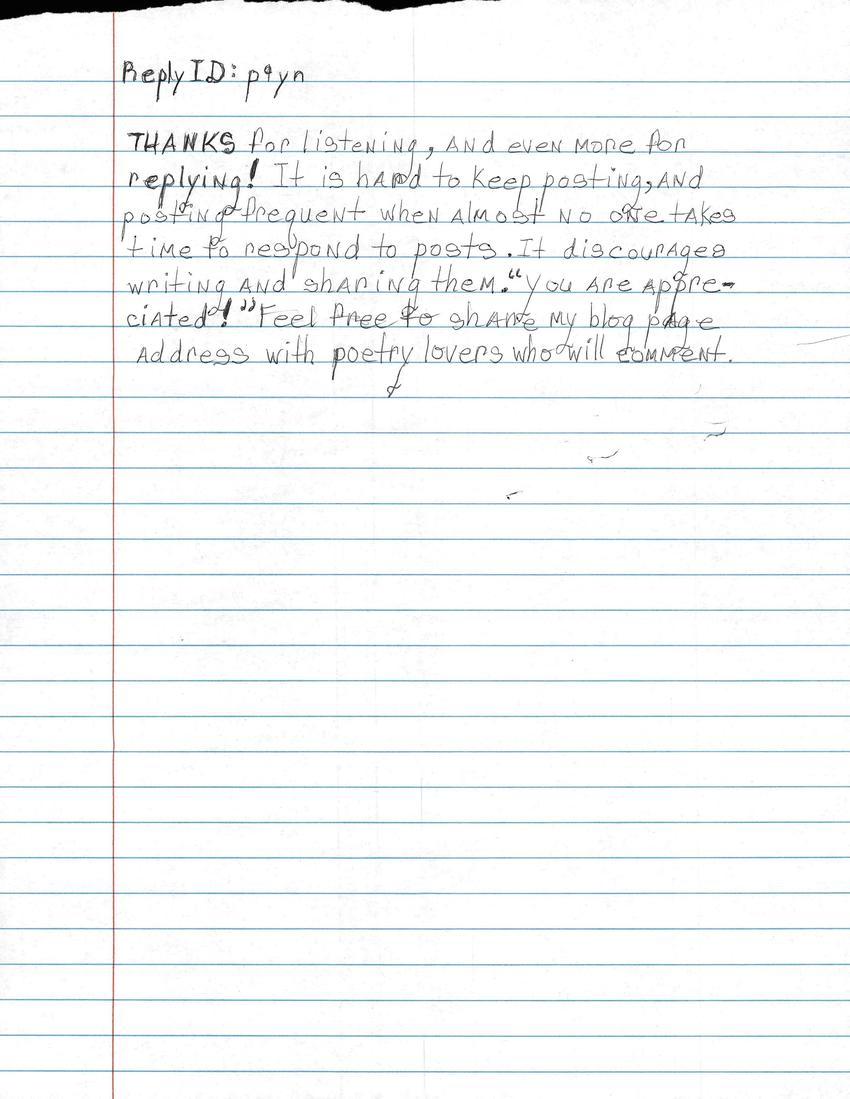 Reply ID: p9yn
THANKS for listening, AND even more for
replying! It is hard to keep posting, AND
posting frequent when Almost no one takes
time to respond to posts. It discourages
writing AND sharing them. "You Are Appre-
ciated!" Feel free to share my blog page
Address with poetry lovers who will comment.